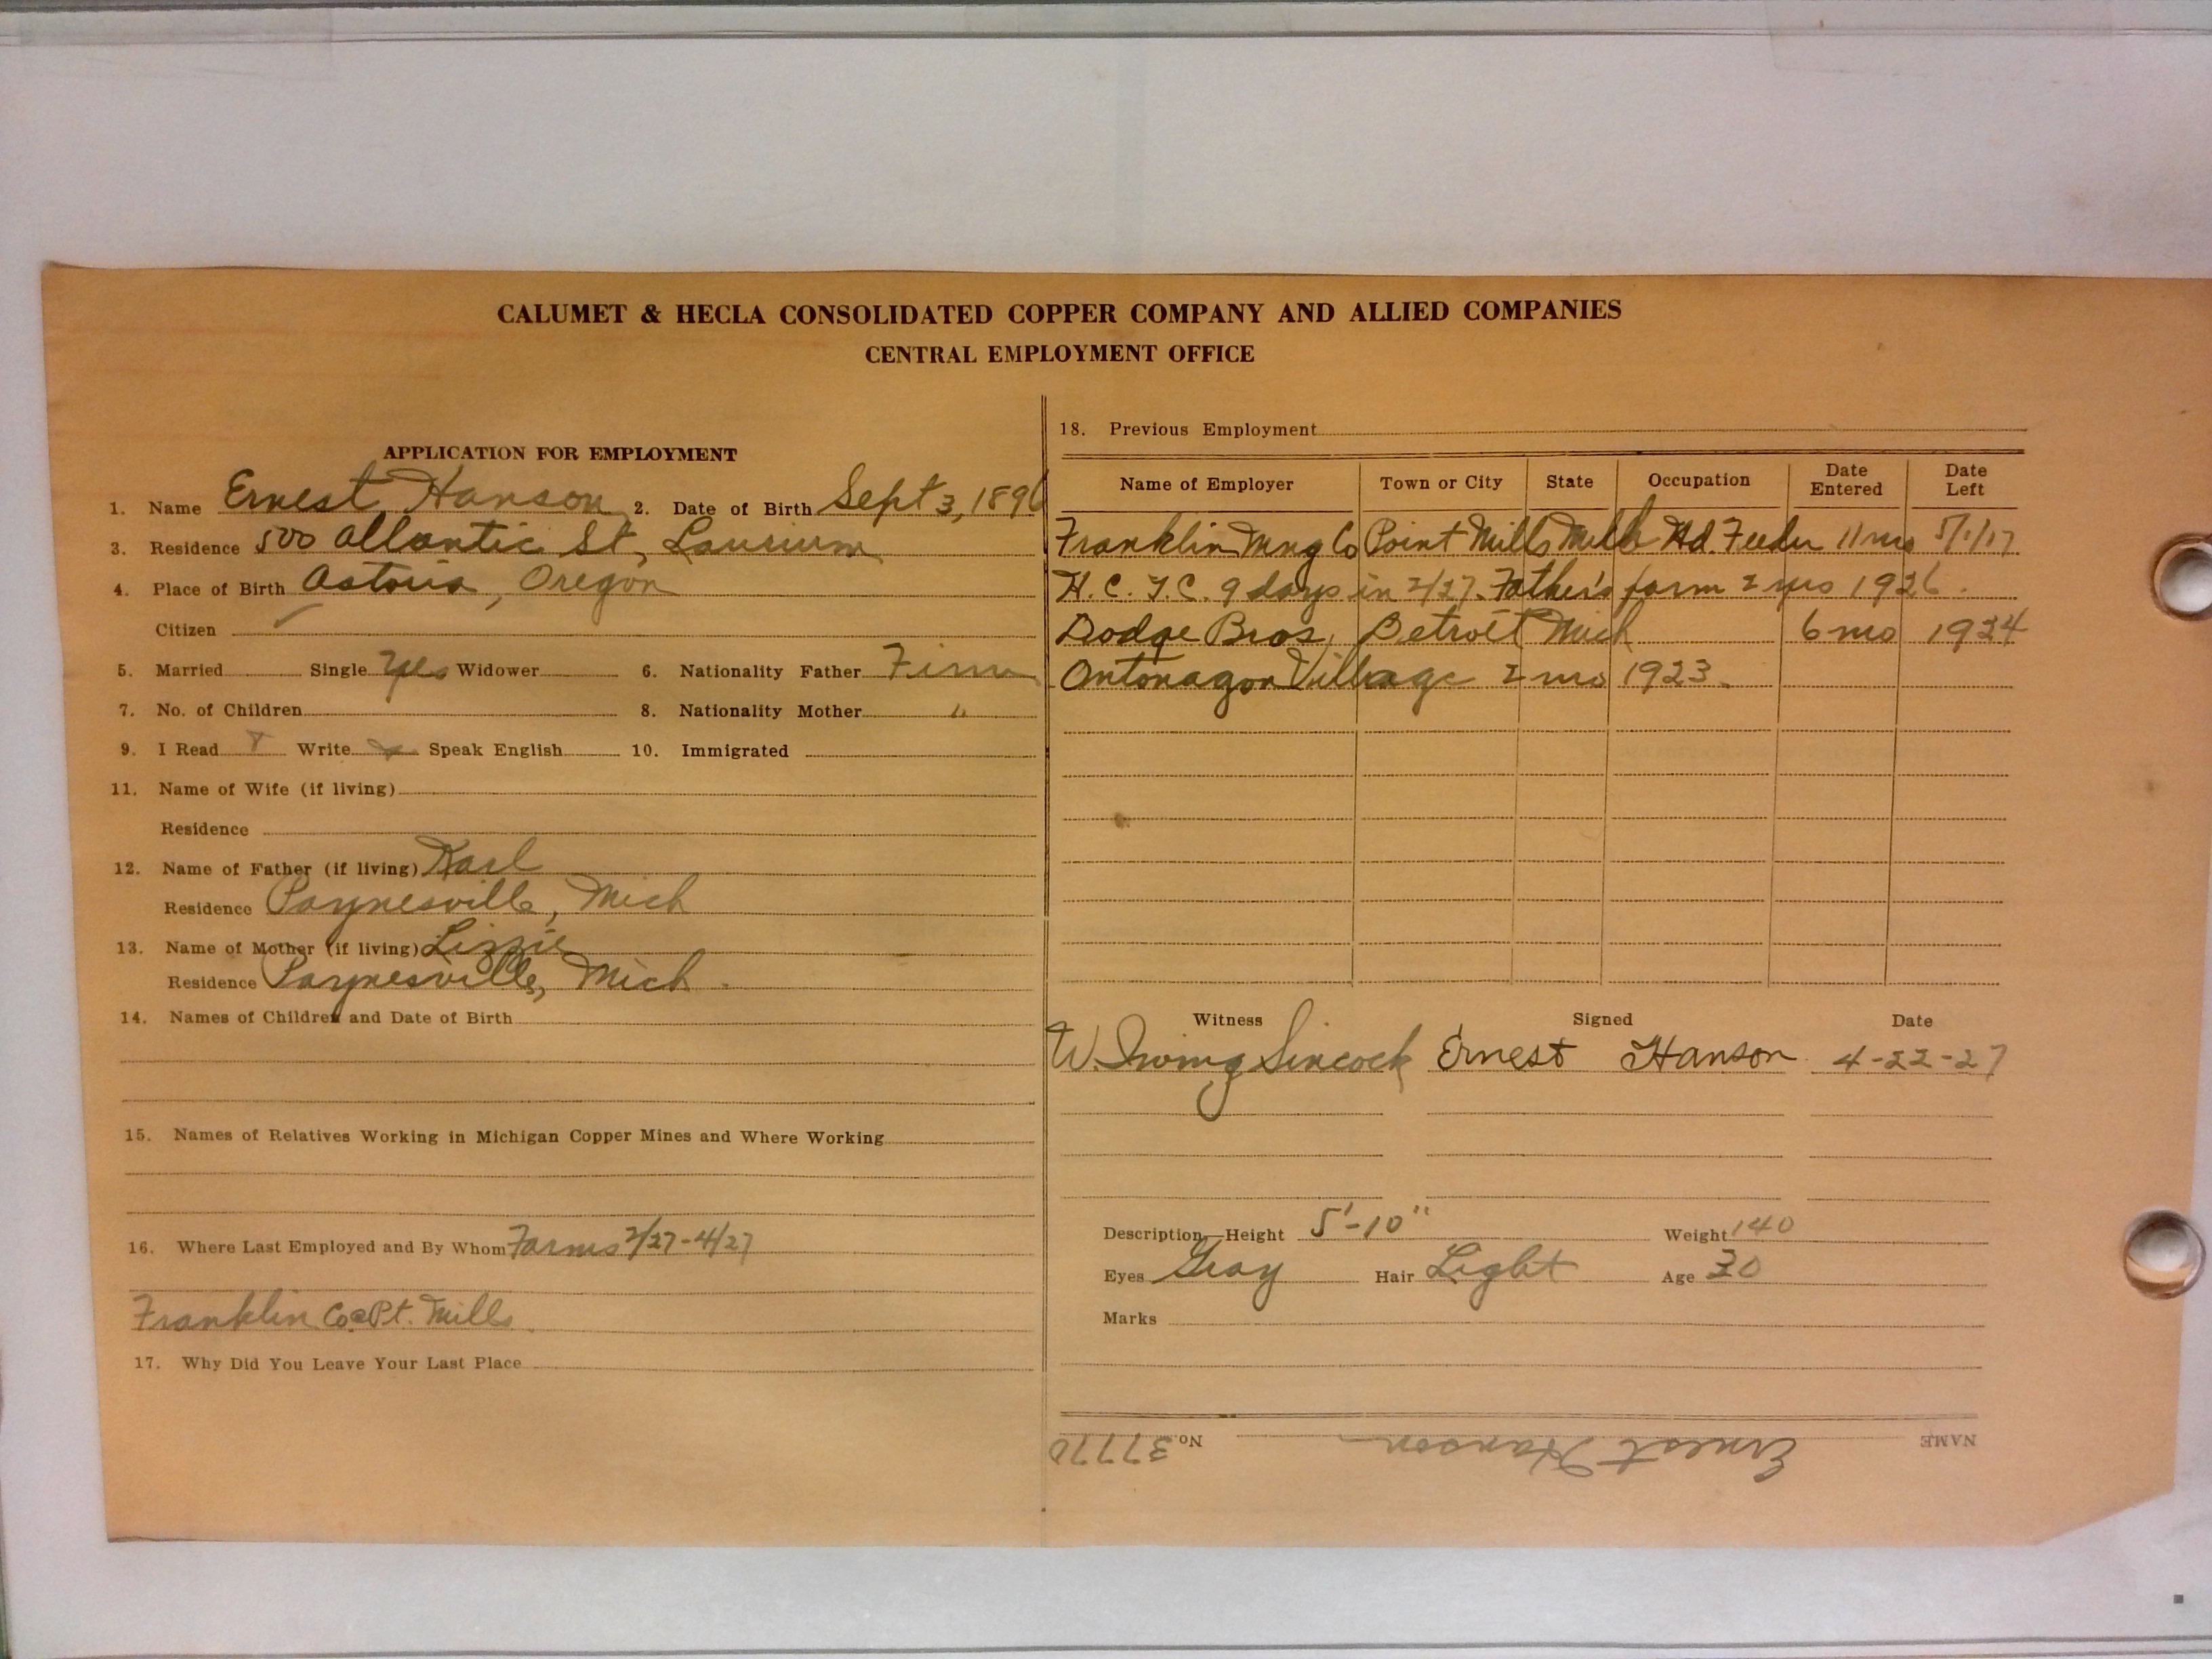 CALUMET & HECLA CONSOLIDATED COPPER COMPANY AND ALLIED COMPANIES
CENTRAL EMPLOYMENT OFFICE
APPLICATION FOR EMPLOYMENT
1. Name Ernest Hanson 2. Date of Birth Sept 3, 1896
3. Residence 500 Atlantic St, Laurium
4. Place of Birth Astoria, Oregon
Citizen ✓
5. Married Single Yes Widower 6. Nationality Father Finn
7. No. of Children 8. Nationality Mother "
9. I Read Write Speak English 10. Immigrated
11. Name of Wife (if living)
Residence
12. Name of Father (if living) Karl
Residence Paynesville, Mich
13. Name of Mother (if living) Lizzie
Residence Paynesville, Mich.
14. Names of Children and Date of Birth
15. Names of Relatives Working in Michigan Copper Mines and Where Working
16. Where Last Employed and By Whom Farms 2/27-4/27
Franklin Co. Pt. Mills
17. Why Did You Leave Your Last Place
18. Previous Employment
Name of Employer Town or City State Occupation Date Entered Date Left
Franklin Mng Co Point Mills Hd. Feeder 11 mos
H.C.T.C. 9 days in 2/27. Father's farm 2 1926.
Dodge Bros, Detroit Mich 6 mo 1924
Ontonagon Village 2 mo 1923.
Witness Signed Date
W. Irving Sincock Ernest Hanson 4-22-27
Description—Height 5'-10" Weight 140
Eyes Gray Hair Light Age 30
Marks
NAME Ernest Hanson No. 37770